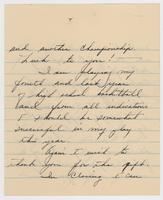 and another Championship.
Luck to you!
I am playing my
fourth and last year
of high school basketball
and from all indications
I should be somewhat
successful in my play
this year.
Again I wish to
thank you for the gift.
In Closing I can